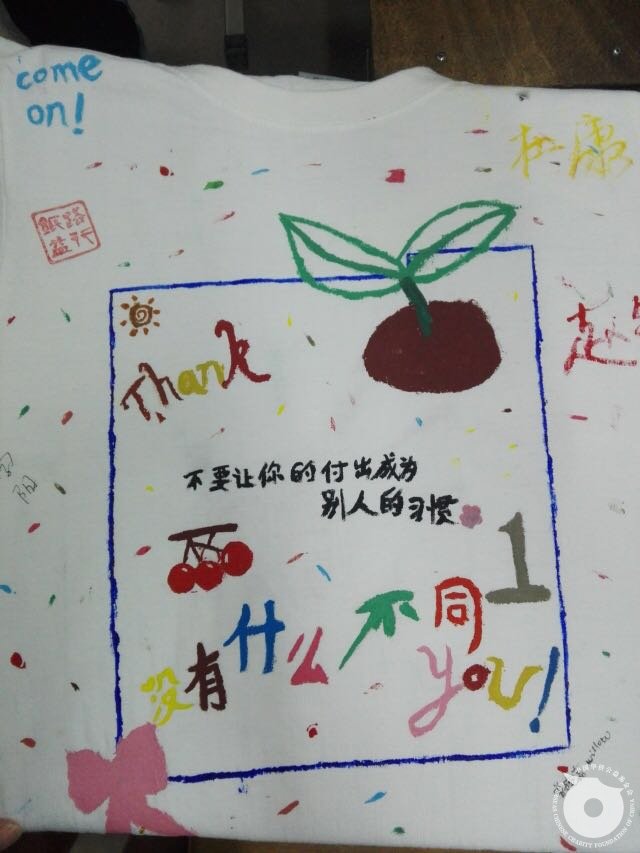 come
on!
Thank
不要让你的付出成为
别人的习惯
1
没有什么不同
you!